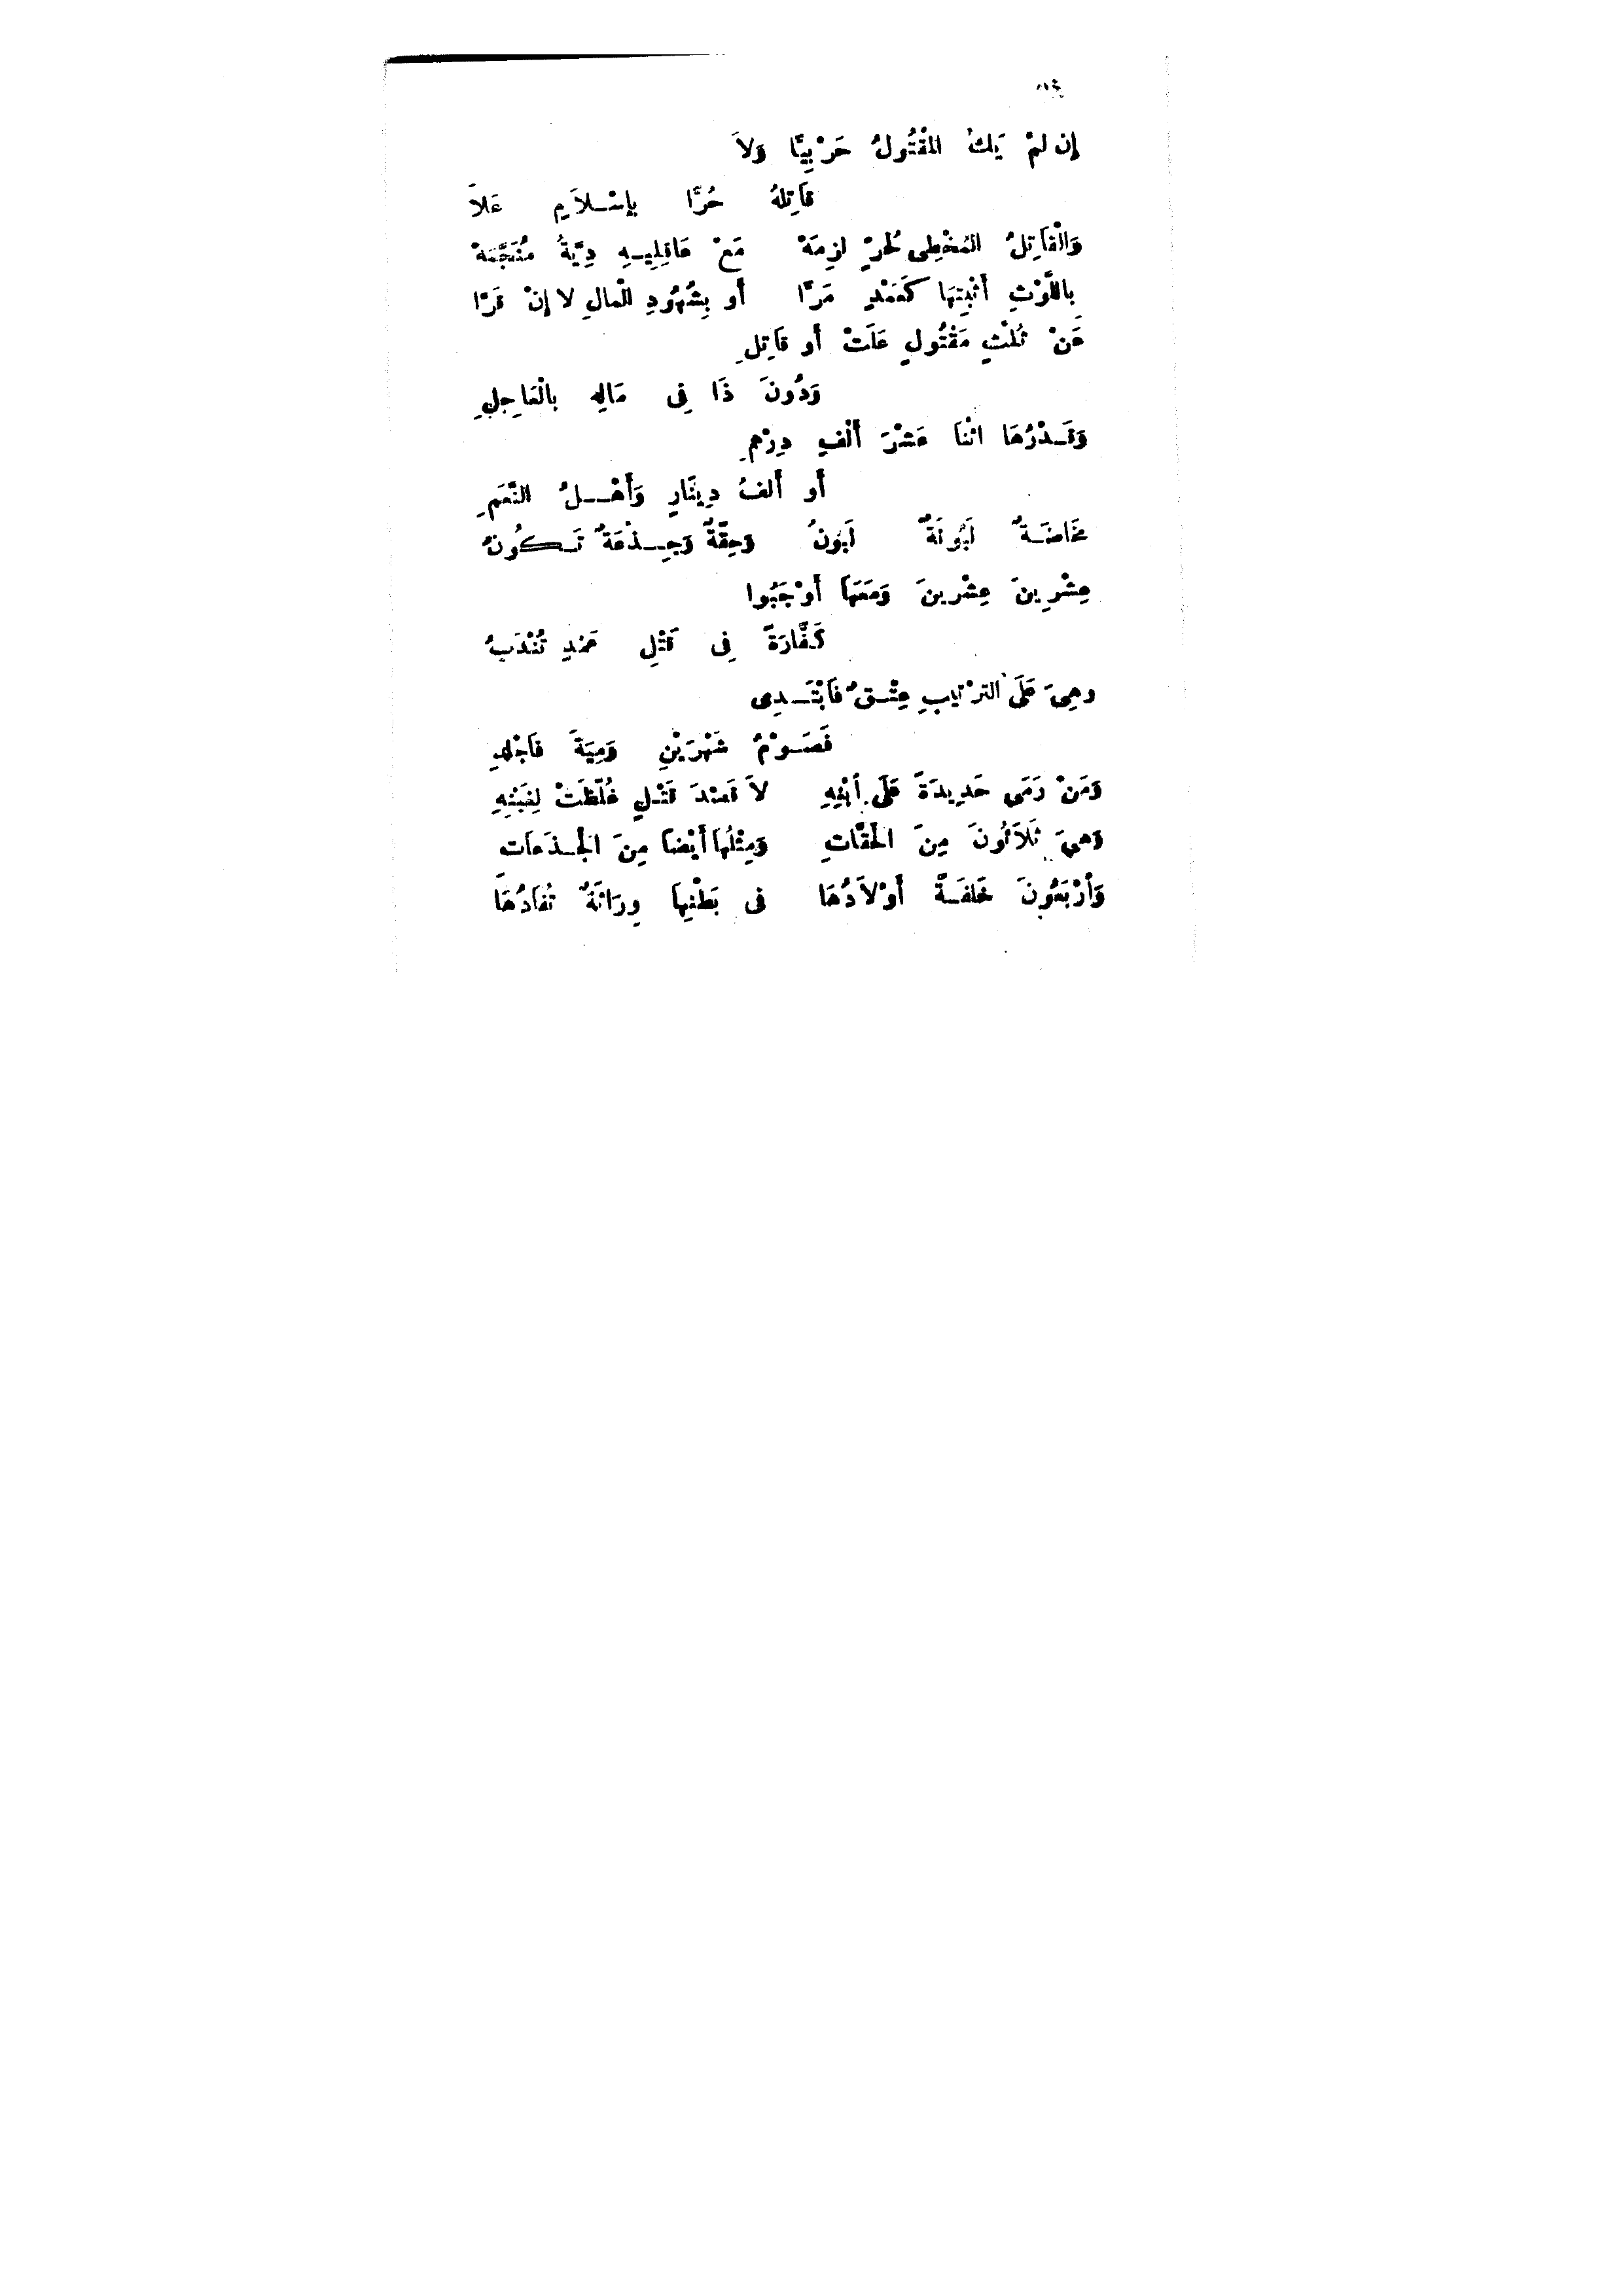 إِن لَمْ يَكُ المَقْتُولُ حَرْبِيًّا وَلاَ
قَاتِلُهُ حُرًّا بِإِسْلاَمٍ عَلاَ
وَالْقَاتِلُ المُخْطِى لِحُرٍّ لزِمَهْ مَعْ عَاقِلِيهِ دِيَّةٌ مُنَجَّمَهْ
بِاللَّوْثِ أَثْبِتِهَا كَعَمْدٍ مَرَّا أَو بِشُهُودِ الْمالِ لا إِنْ قَرَّا
عَنْ ثُلْثِ مَقْتُولٍ عَلَتْ أَو قَاتِلِ
وَدُونَ ذَا فِى مَالِهِ بالْعَاجِلِ
وَقَدْرُهَا اثْنَا عَشْرَ أَلْفِ دِرْهَمِ
أَو أَلفُ دِينَارٍ وَأَهْلُ النَّعَمِ
مَخَاضَةٌ لَبُونَةٌ لَبُونُ وَحِقَّةٌ وَجِذْعَةٌ تَكُونُ
عِشْرِينَ عِشْرِينَ وَمَعَهَا أَوْجَبُوا
كَفَّارَةً فِى قَتْلِ عَمْدٍ تُنْدَبُ
وهِىَ عَلَى الترْتِيبِ عِتْقٌ فَابْتَدِى
فَصَوْمُ شَهْرَيْنِ وَمِيَةً فَاجْلِدِ
وَمَنْ رَمَى حَدِيدَةً عَلَى ابْنِهِ لاَ قَصْدَ قَتْلٍ غُلِّظَتْ لِغَبْنِهِ
وَهىَ ثَلاَثُونَ مِنَ الحَقَّاتِ وَمِثْلُهَا أَيْضًا مِنَ الْجَذَعَات
وَأَرْبَعُونَ خَلفَةً أَوْلاَدُهَا فى بَطْنِهَا وِرَاثَةٌ تُفَادُهَا